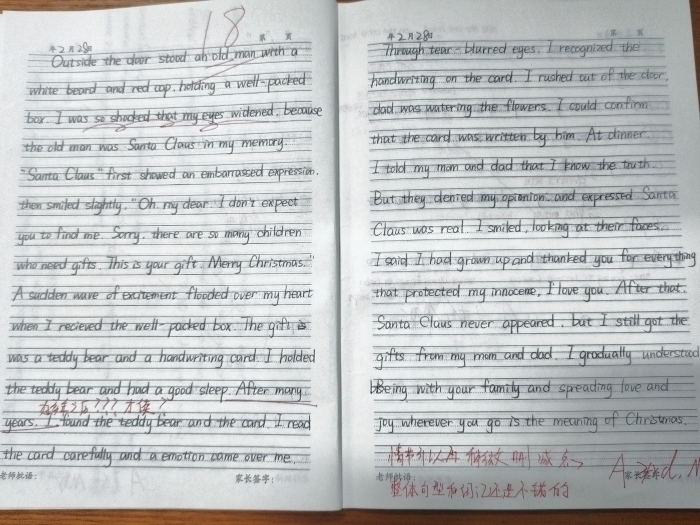 18
年2月28日
第 页
Outside the door stood an old man with a
white beard and red cap, holding a well-packed
box. I was so shocked that my eyes widened, because
the old man was Santa Claus in my memory.
"Santa Claus" first showed an embarrassed expression,
then smiled slightly. "Oh, my dear. I don't expect
you to find me. Sorry, there are so many children
who need gifts. This is your gift. Merry Christmas."
A sudden wave of excitement flooded over my heart
when I recieved the well-packed box. The gift is
was a teddy bear and a handwriting card. I holded
the teddy bear and had a good sleep. After many
years. I found the teddy bear and the card. I read
the card carefully and a emotion came over me.
老师批语: 家长签字:
年2月28日
第 页
Through tear-blurred eyes. I recognized the
handwriting on the card. I rushed out of the door,
dad was watering the flowers. I could confirm
that the card was written by him. At dinner.
I told my mom and dad that I know the truth.
But they denied my opionion and expressed Santa
Claus was real. I smiled, looking at their faces.
I said I had grown up and thanked you for everything
that protected my innocene, I love you. After that.
Santa Claus never appeared, but I still got the
gifts from my mom and dad. I gradually understood
Being with your family and spreading love and
joy wherever you go is the meaning of Christmas.
情节可以再
老师批语:
整体句型和词汇还是不错的